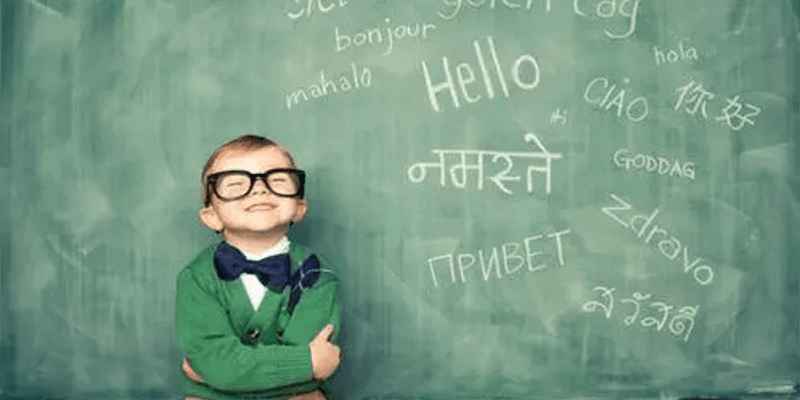 guten tag
bonjour
hola
mahalo
Hello
CIAO
你好
नमस्ते
GODDAG
Zdravo
ПРИВЕТ
สวัสดี